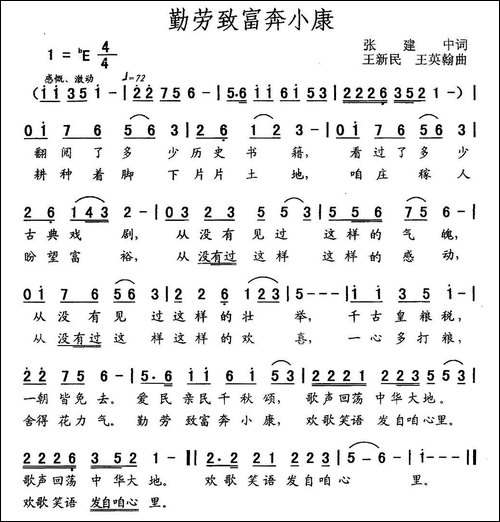 勤劳致富奔小康
1 = ♭E 4/4
张建中词
王新民 王英翰曲
感慨、激动 ♩=72
(i i 3 5 i - | 2 2 7 5 6 - | 5·6 i i 6 i 5 3 | 2 2 2 6 3 5 2 1 - )
0 i 7 6 5 6 3 | 2 6 1 2 - | 0 i 7 6 5 6 3
翻阅了多少历史书籍, 看过了多少
耕种着脚下片片土地, 咱庄稼人
2 6 1 4 3 2 - | 0 3 0 2 3 5 5 3 | 5 5 6 7 5 6 -
古典戏剧, 从没有见过这样的气魄,
盼望富裕, 从没有过这样这样的感动,
0 i 7 6 5 6 3 | 2 2 2 6 1 2 3 - | i i 3 5 i -
从没有见过这样的壮举, 千古皇粮税,
从没有过这样这样的欢喜, 一心多打粮,
2 2 7 5 6 - | 5·6 i i 6 i 5 3 | 2 2 2 2 2 2 1 3 5 -
一朝皆免去。爱民亲民千秋颂, 歌声回荡中华大地。
舍得花力气。勤劳致富奔小康, 欢歌笑语发自咱心里。
2 2 2 6 3 5 2 1 - | 2· 2 2 1 2 2 1 3 | 5 - 6 - | i - - ·
歌声回荡中华大地。 欢歌笑语发自咱心里。
欢歌笑语发自咱心里。